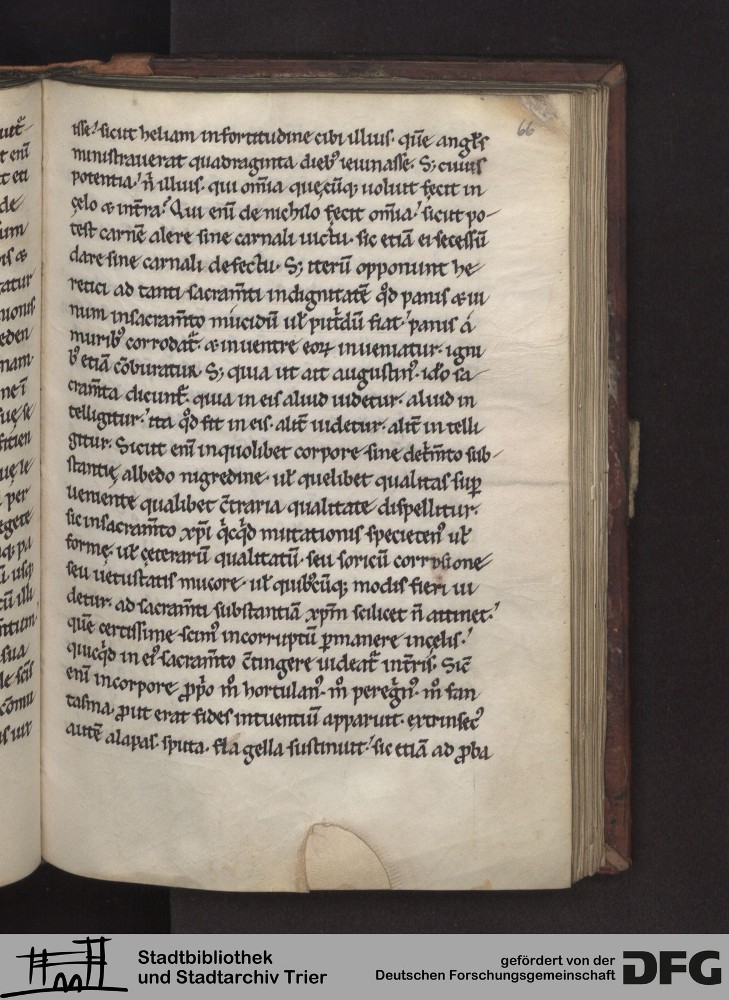 66
isse? sicut heliam in fortitudine cibi illius. quē angl̄s
ministrauerat quadraginta dieb; ieiunasse. S; cuius
potentia? n̄ illius. qui om̄ia quęcūq; uoluit fecit in
çelo & int̄ra? Qui enī de nichilo fecit om̄ia? sicut po-
test carnē alere sine carnali uictu. sic etiā ei secessū
dare sine carnali defectu. S; iterū opponunt he-
retici ad tanti sacram̄ti indignitatē qd̄ panis & ui
num in sacram̄to mucidū ul̄ putdū fiat. panis á
murib; corrodat̄. & inuentre eoꝝ inueniatur. igni
b; etiā cōburatur. S; quia ut ait augustin᷒. ido sa-
cram̄ta dicunt̄. quia in eis aliud uidetur. aliud in
telligitur. ita qd̄ fit in eis. alit̄ uidetur. alit̄ in telli
gitur. Sicut enī in quolibet corpore sine det̄mto sub-
stantię albedo nigredine. ul̄ quelibet qualitas sup
ueniente qualibet c̄traria qualitate dispellitur.
sic in sacram̄to xp̄i qicqd mutationis specieten᷒ ul̄
formę. ul̄ ceterarū qualitatū. seu soricū corrosione
seu uetustatis mucore. ul̄ quib;cūq; modis fieri ui
detur. ad sacram̄ti substantiā xp̄m scilicet n̄ attinet.
quē certissime scim᷒ incorruptū ꝑmanere in celis.
quicqd in ei᷒ sacram̄to c̄tingere uideat̄ in t̄ris. Sic̄
enī in corpore ꝓpo m̊ hortulan᷒. m̊ peregn᷒. m̊ fan
tasma. ꝓut erat fides intuentiū apparuit. extrinsec᷒
autē alapas. sputa. fla gella sustinuit. sic etiā ad ꝓba
Stadtbibliothek
und Stadtarchiv Trier
gefördert von der
Deutschen Forschungsgemeinschaft
DFG